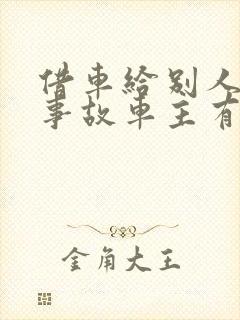 借車給别人
事故車主有
金角大王